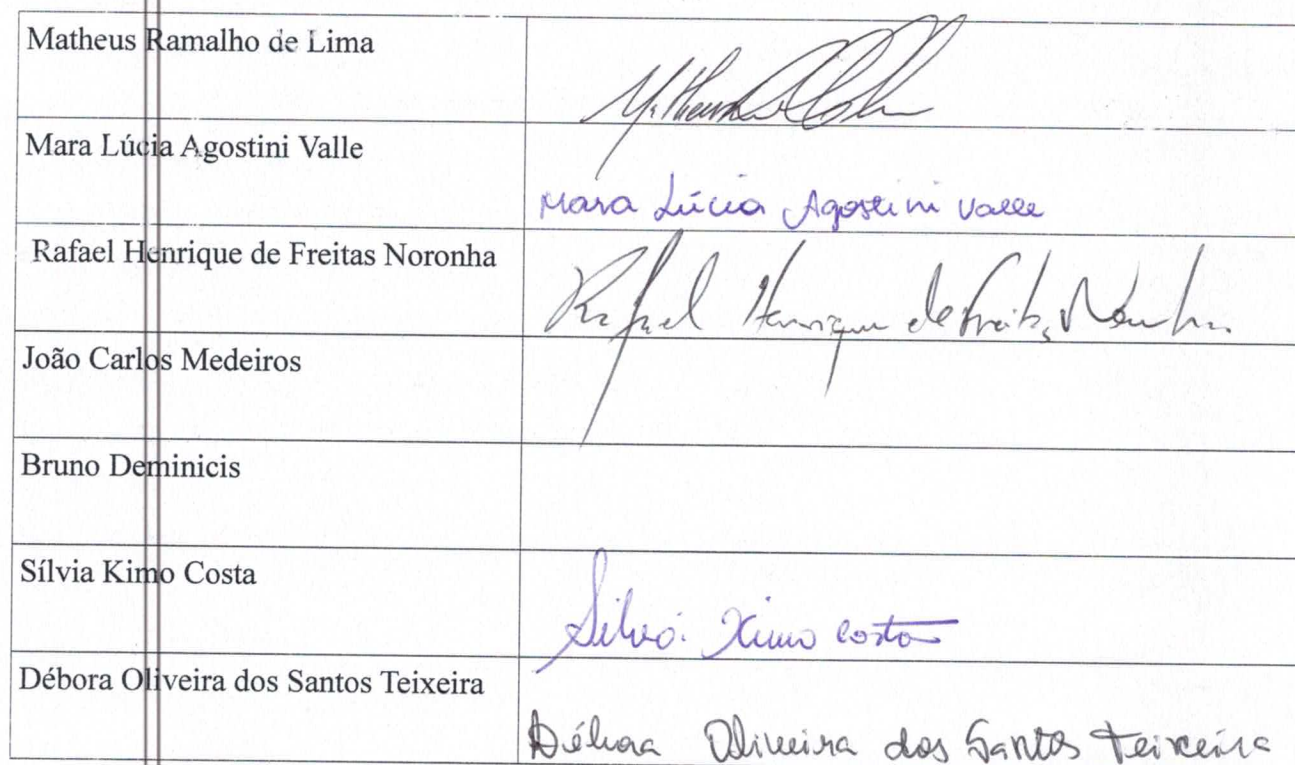 Matheus Ramalho de Lima
Mara Lúcia Agostini Valle
Mara Lúcia Agostini Valle
Rafael Henrique de Freitas Noronha
Rafael Henrique de Freitas Noronha
João Carlos Medeiros
Bruno Deminicis
Sílvia Kimo Costa
Silvia Kimo Costa
Débora Oliveira dos Santos Teixeira
Débora Oliveira dos Santos Teixeira